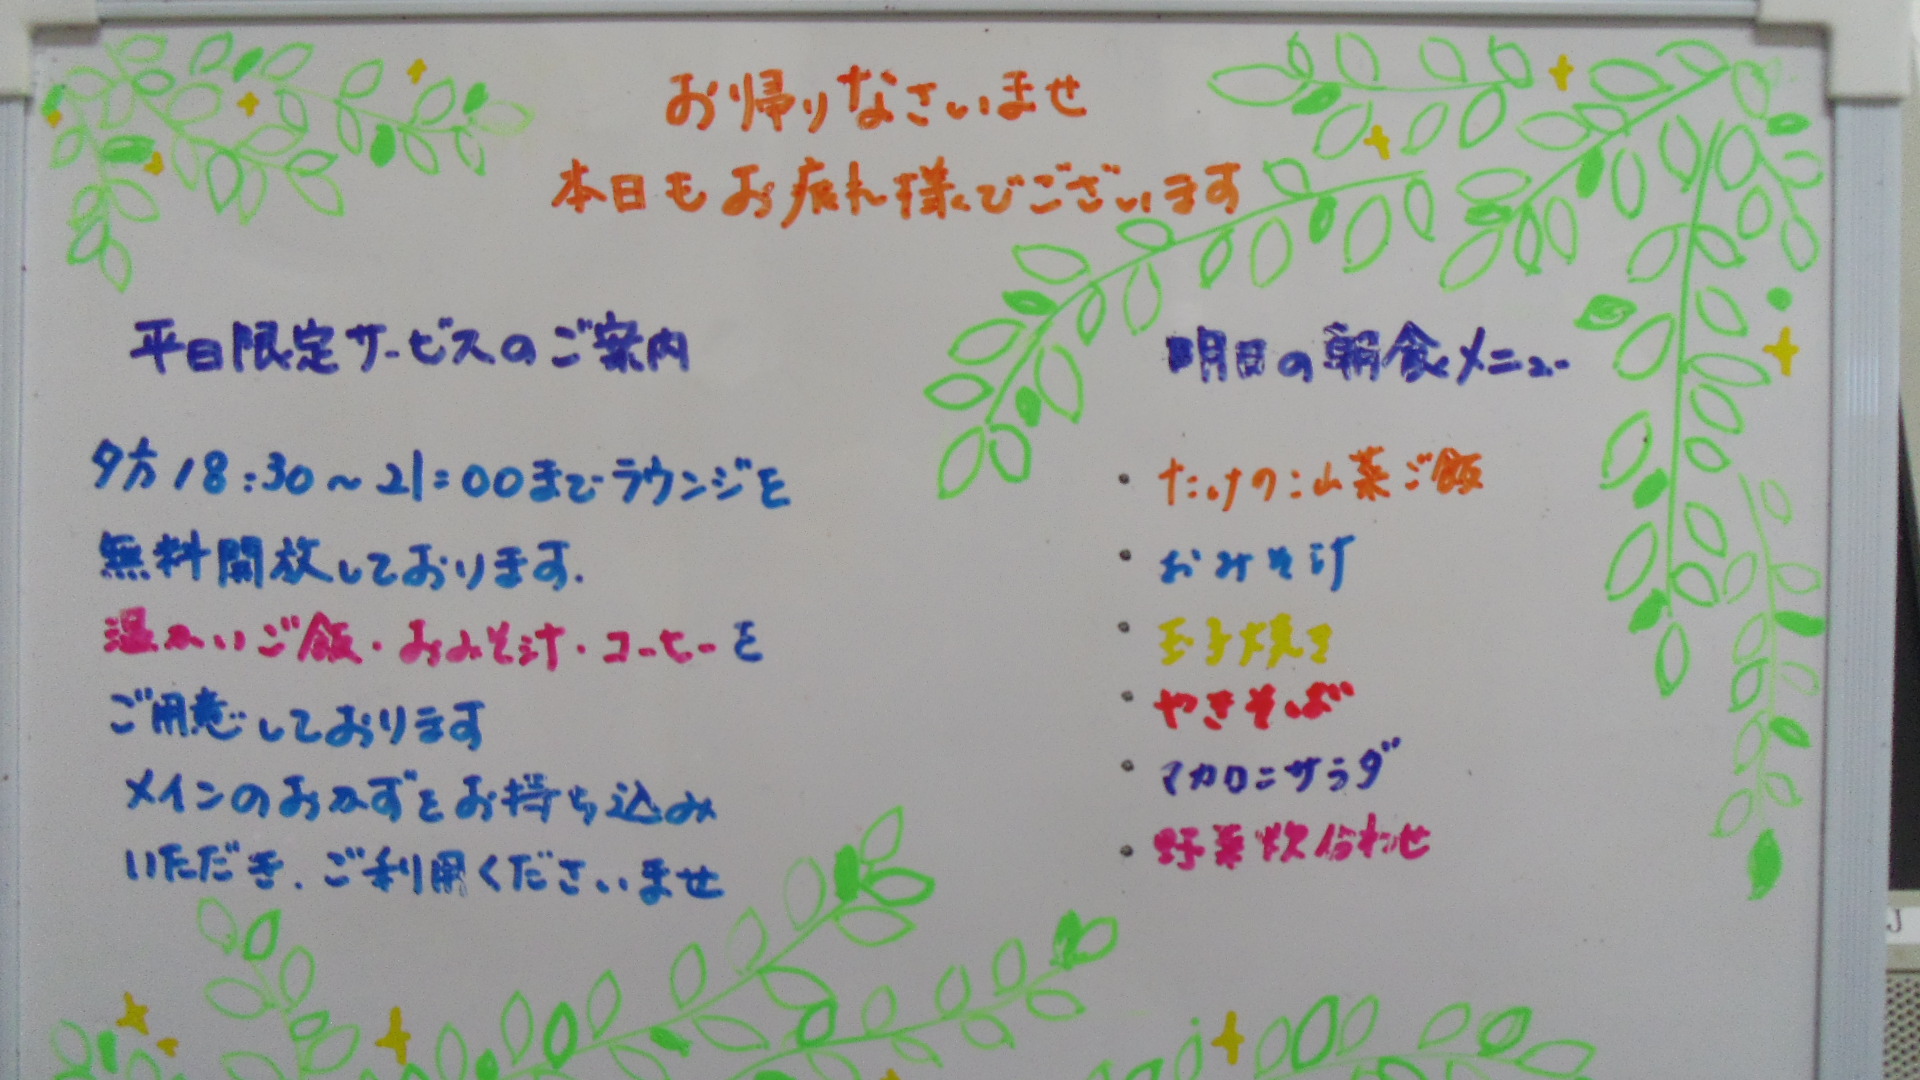 お帰りなさいませ
本日もお疲れ様でございます
平日限定サービスのご案内
夕方18:30～21:00までラウンジを
無料開放しております.
温かいご飯・おみそ汁・コーヒーを
ご用意しております
メインのおかずをお持ち込み
いただき、ご利用くださいませ
明日の朝食メニュー
・たけのこ山菜ご飯
・おみそ汁
・玉子焼き
・やきそば
・マカロニサラダ
・野菜炊合わせ
J